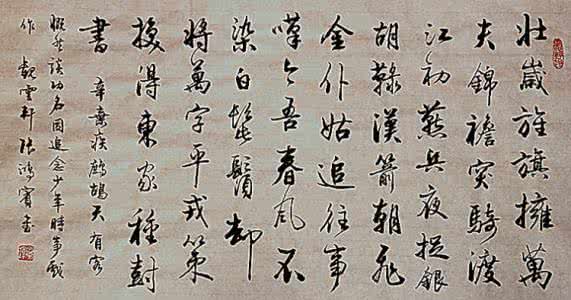 壯歲旌旗擁萬
夫錦襜突騎渡
江初燕兵夜捉銀
胡䩮漢箭朝飛
金仆姑追往事
嘆今吾春風不
染白髭鬚却
將萬字平戎策
換得東家種樹
書 辛棄疾鷓鴣天有客
慨然談功名因追念少年時事戲
作 觀雲軒張鴻賓書